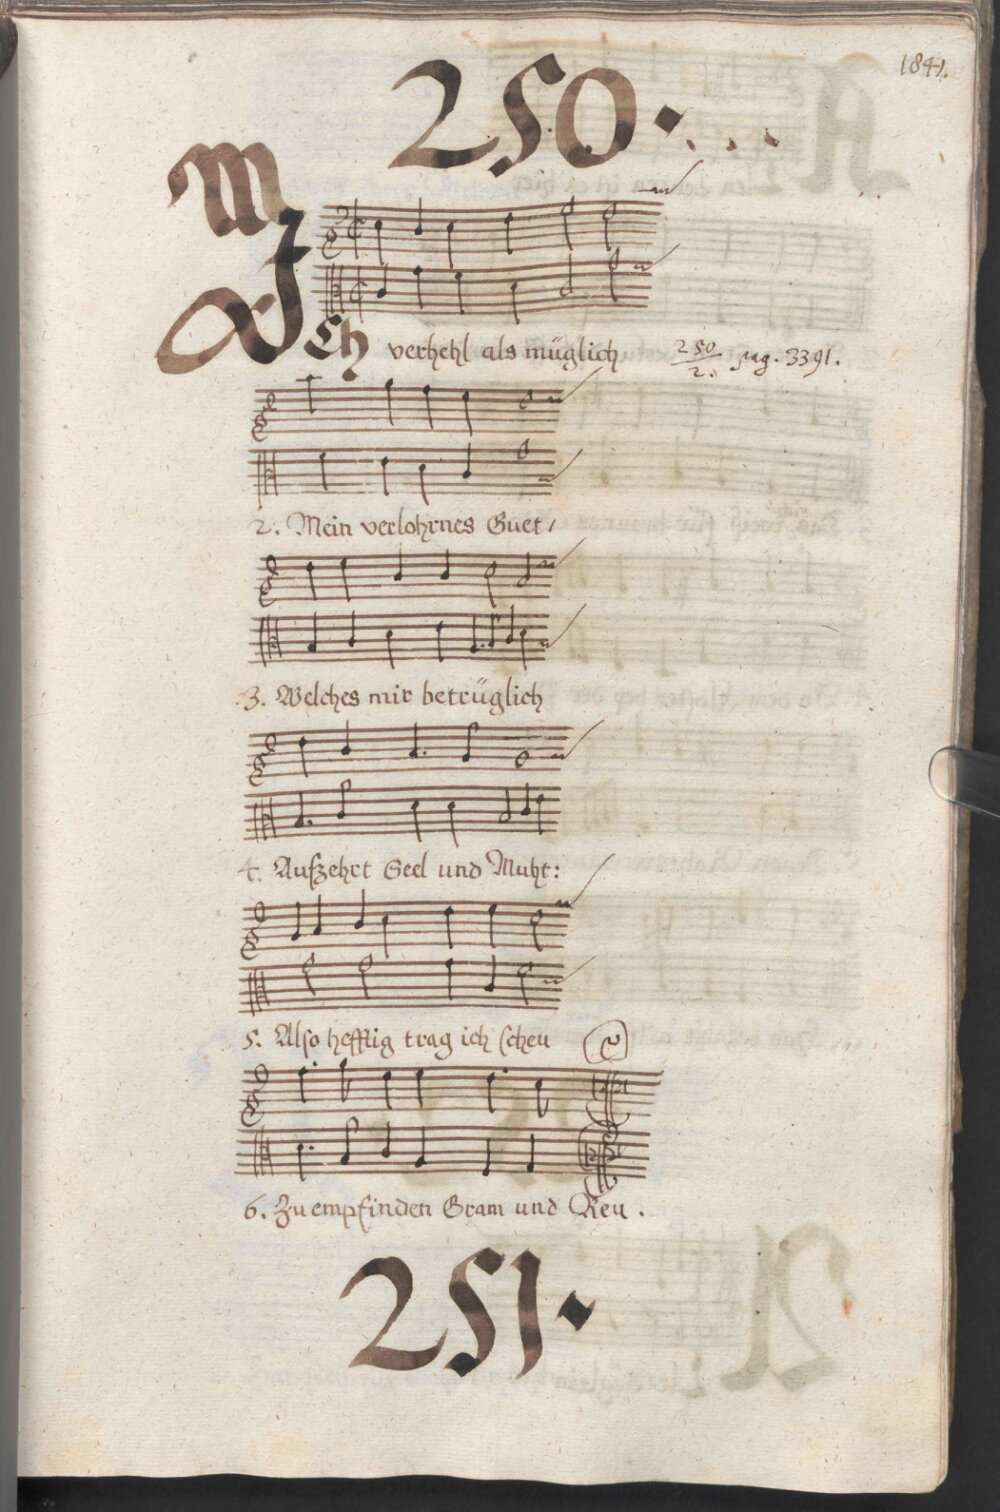 1841.
250.
M
ICh verhehl als müglich 250/2. pag. 3391.
2. Mein verlohrnes Guet,
3. Welches mir betrüglich
4. Aufzehrt Seel und Muht:
5. Also hefftig trag ich scheu
6. Zu empfinden Gram und Reu.
251.